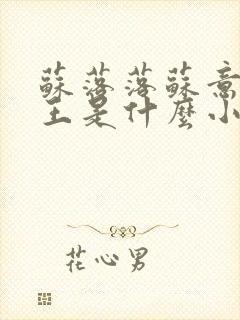 蘇落落蘇意
主是什麼小
花心男